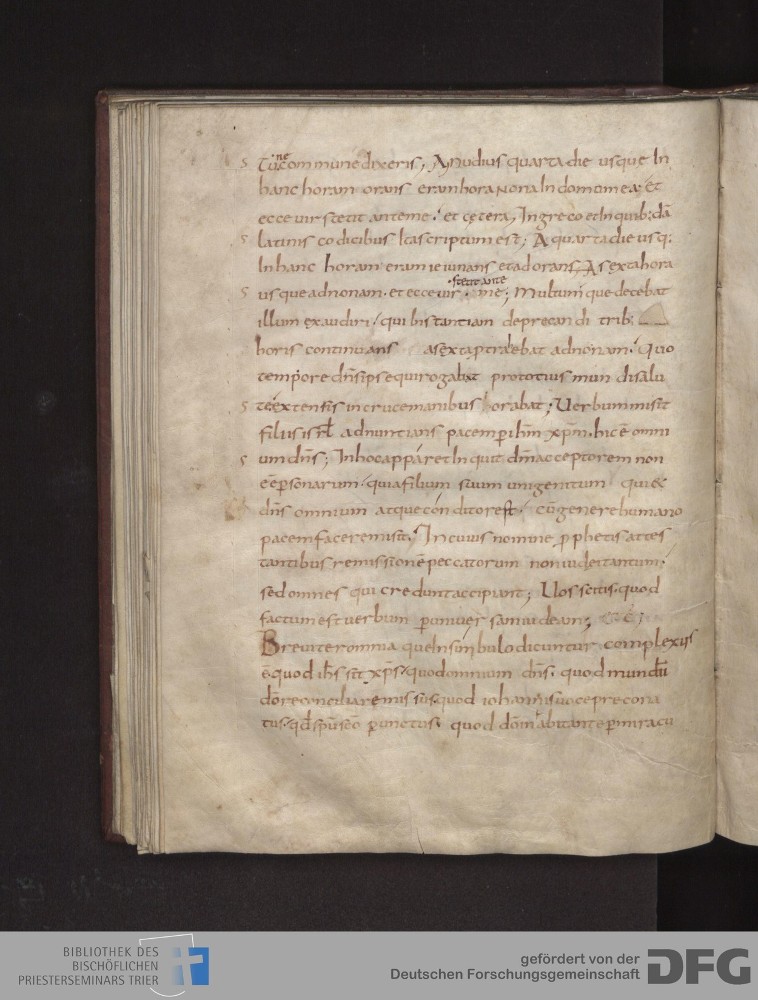 s Tu ne commune dixeris; A nudius quarta die usque In
hanc horam orans eram hora Nona In domo mea; et
ecce vir stetit ante me; et cetera; In greco et In quib; dã
s latinis codicibus Ita scriptum est; A quarta die usq;
In hanc horam eram ieiunans et adorans, A sexta hora
stetit ante
s usque ad nonam. et ecce uir me; Multum que decebat
illum exaudiri, qui bis tantiam deprecandi trib;
horis continuans a sexta ptraebat ad nonam; Quo
tempore dñs ipse qui rogabat prototius mundi salu
s te extensis in cruce manibus orabat; Uerbum misit
filiis isrl adnuntians pacem p ihm xpm. hic ẽ omni
s um dñs; In hoc apparet In quit dm acceptorem non
eẽ personarum, quia filium suum unigenitum qui ẽ
dñs omnium atque conditor est, cũ genere humano
pacem facere misit; In cuius nomine prophetis attes
tantibus remissionẽ peccatorum non iudei tantum,
sed omnes qui credunt accipiant; Uos scitis quod
factum est uerbum p uniuersam iudeam;
Breuiter omnia que In simbulo dicuntur complexus
ẽ quod ihs sit xps, quod omnium dñs. quod mundũ
dõ reconciliare missus, quod iohannis uoce preconi
tus, qd spu scõ punctus. quod dõm abitante p miracu
BIBLIOTHEK DES
BISCHÖFLICHEN
PRIESTERSEMINARS TRIER
gefördert von der
Deutschen Forschungsgemeinschaft
DFG